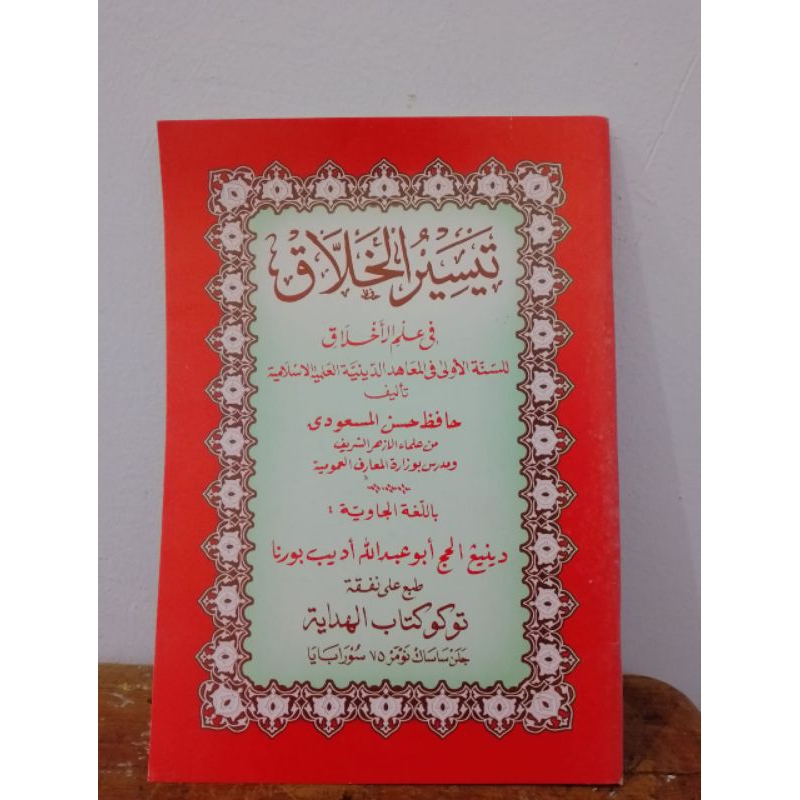 تَيْسِيْرُ الْخَلَّاقْ
فى علم الأخلاق
للسنة الأولى فى المعاهد الدينية العلمية الاسلامية
تأليف
حافظ حسن المسعودى
من علماء الازهر الشريف
ومدرس بوزارة المعارف العمومية
باللّغة الجاويّة :
دينيڠ الحج أبو عبد الله أديب بورنا
طبع على نفقة
توكو كتاب الهداية
جلن ساساك نومر ٧٥ سورابايا